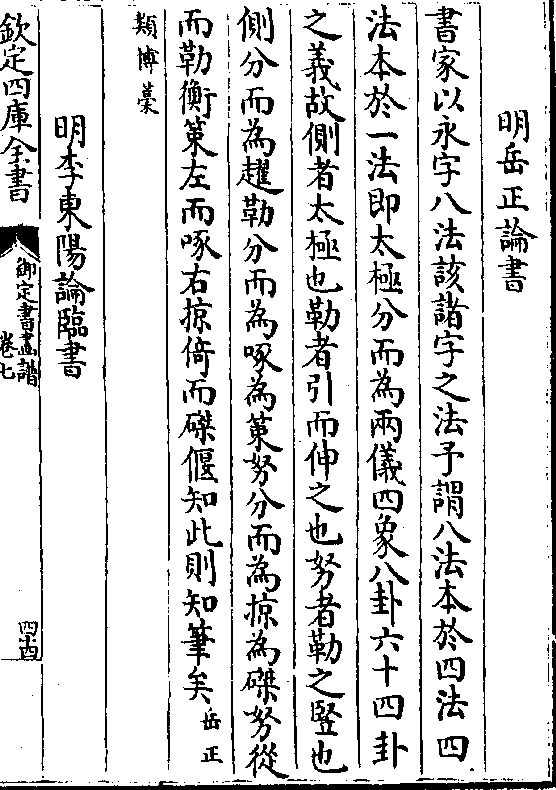 明岳正論書
書家以永字八法該諸字之法予謂八法本於四法四
法本於一法即太極分而為兩儀四象八卦六十四卦
之義故側者太極也勒者引而伸之也努者勒之豎也
側分而為趯勒分而為啄為策努分而為掠為磔努從
而勒衡策左而啄右掠倚而磔偃知此則知筆矣岳正
類博藁
明李東陽論臨書
欽定四庫全書
御定書畫譜
卷七
四十四